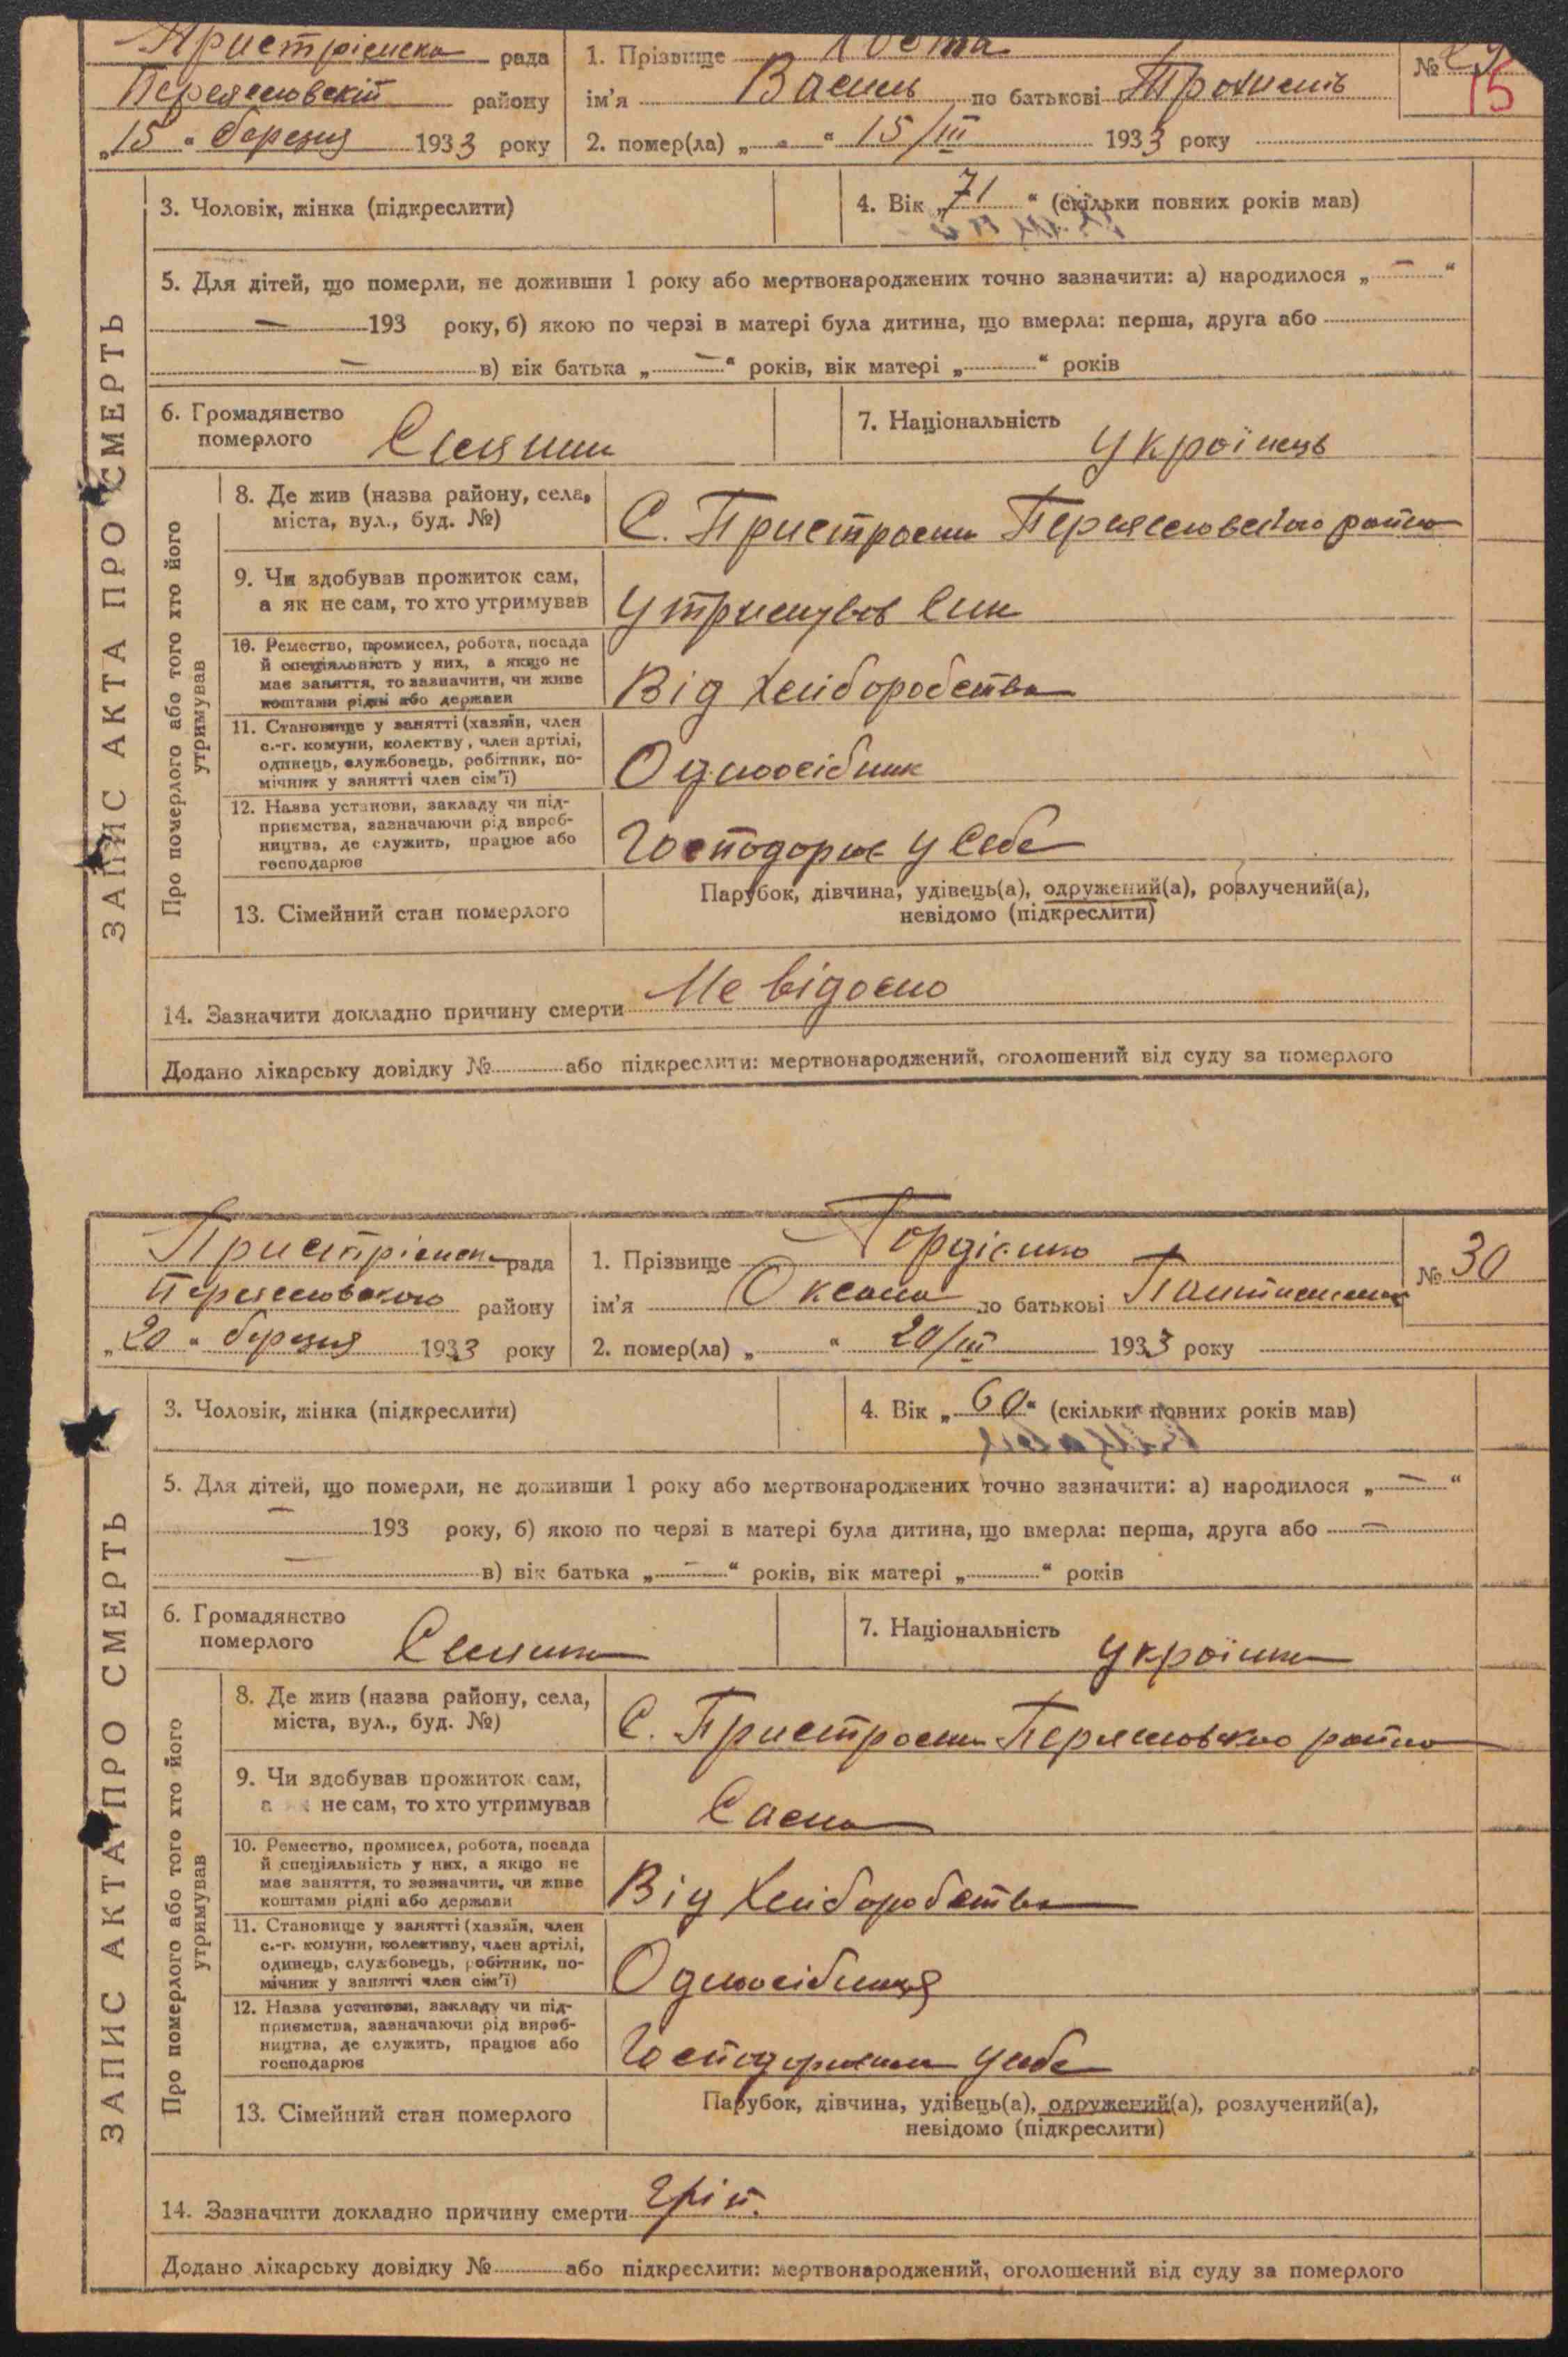 Пристрімська рада
1. Прізвище
№ 29
15
Переяслівский району
ім'я Василь по батькові Трохимів
„15“ березня 1933 року
2. помер(ла) „ “ 15/III 1933 року
3. Чоловік, жінка (підкреслити)
4. Вік „71“ (скільки повних років мав)
5. Для дітей, що померли, не доживши 1 року або мертвонароджених точно зазначити: а) народилося „ — “
— 193 року, б) якою по черзі в матері була дитина, що вмерла: перша, друга або
— в) вік батька „ — “ років, вік матері „ “ років
6. Громадянство померлого Селянин
7. Національність Українець
ЗАПИС АКТА ПРО СМЕРТЬ
Про померлого або того хто його утримував
8. Де жив (назва району, села,
міста, вул., буд. №)
С. Пристроми Переясловского району
9. Чи здобував прожиток сам,
а як не сам, то хто утримував
Утримував син
10. Ремество, промисел, робота, посада
й спеціяльність у них, а якщо не
має заняття, то зазначити, чи живе
коштами рідні або держави
Від Хліборобства
11. Становище у занятті (хазяїн, член
с.-г. комуни, колектву, член артілі,
одинець, службовець, робітник, по-
мічник у занятті член сім'ї)
Одноосібник
12. Назва установи, закладу чи під-
приємства, зазначаючи рід вироб-
ництва, де служить, працює або
господарює
Господорює у себе
13. Сімейний стан померлого
Парубок, дівчина, удівець(а), одружений(а), розлучений(а),
невідомо (підкреслити)
14. Зазначити докладно причину смерти Не відомо
Додано лікарську довідку № або підкреслити: мертвонароджений, оголошений від суду за померлого
Пристрімська рада
1. Прізвище Гордієнко
№ 30
Переясловского району
ім'я Оксана по батькові
„20“ березня 1933 року
2. помер(ла) „ “ 20/III 1933 року
3. Чоловік, жінка (підкреслити)
4. Вік „60“ (скільки повних років мав)
5. Для дітей, що померли, не доживши 1 року або мертвонароджених точно зазначити: а) народилося „ — “
— 193 року, б) якою по черзі в матері була дитина, що вмерла: перша, друга або —
— в) вік батька „ — “ років, вік матері „ “ років
6. Громадянство померлого Селянка
7. Національність Українка
ЗАПИС АКТА ПРО СМЕРТЬ
Про померлого або того хто його утримував
8. Де жив (назва району, села,
міста, вул., буд. №)
С. Пристроми Переясловского району
9. Чи здобував прожиток сам,
а не сам, то хто утримував
Сама
10. Ремество, промисел, робота, посада
й спеціяльність у них, а якщо не
має заняття, то зазначити, чи живе
коштами рідні або держави
Від Хліборобства
11. Становище у занятті (хазяїн, член
с.-г. комуни, колективу, член артілі,
одинець, службовець, робітник, по-
мічник у занятті член сім'ї)
Одноосібниця
12. Назва установи, закладу чи під-
приємства, зазначаючи рід вироб-
ництва, де служить, працює або
господарює
у себе
13. Сімейний стан померлого
Парубок, дівчина, удівець(а), одружений(а), розлучений(а),
невідомо (підкреслити)
14. Зазначити докладно причину смерти Гріп.
Додано лікарську довідку № або підкреслити: мертвонароджений, оголошений від суду за померлого